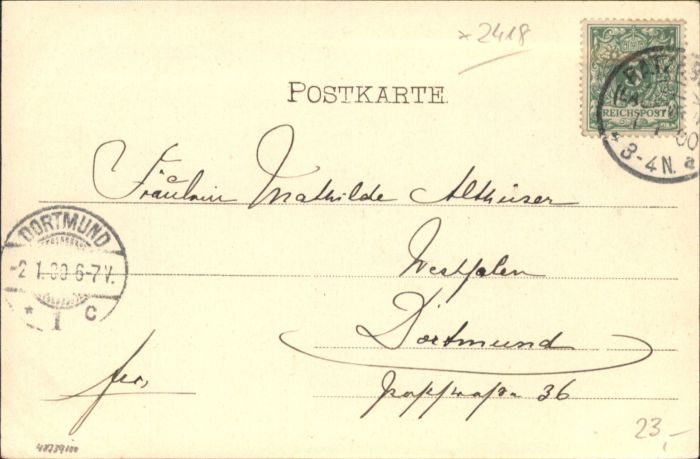 x 2418
POSTKARTE.
REICHSPOST
3-4 N. a
Fräulein Mathilde Althüser
DORTMUND
-2 1.00 6-7 V.
* 1 c
Westfalen
Dortmund
frei,
36
23,-
48739100